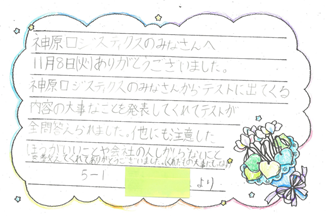 神原ロジスティクスのみなさんへ
11月8日(火)ありがとうございました。
神原ロジスティクスのみなさんがらテストに出てくる
内容の大事なことを発表してくれてテストが
全問答えられました。他にも注意した
ほうがいいことや会社の人しかわからないこと
5-1
より